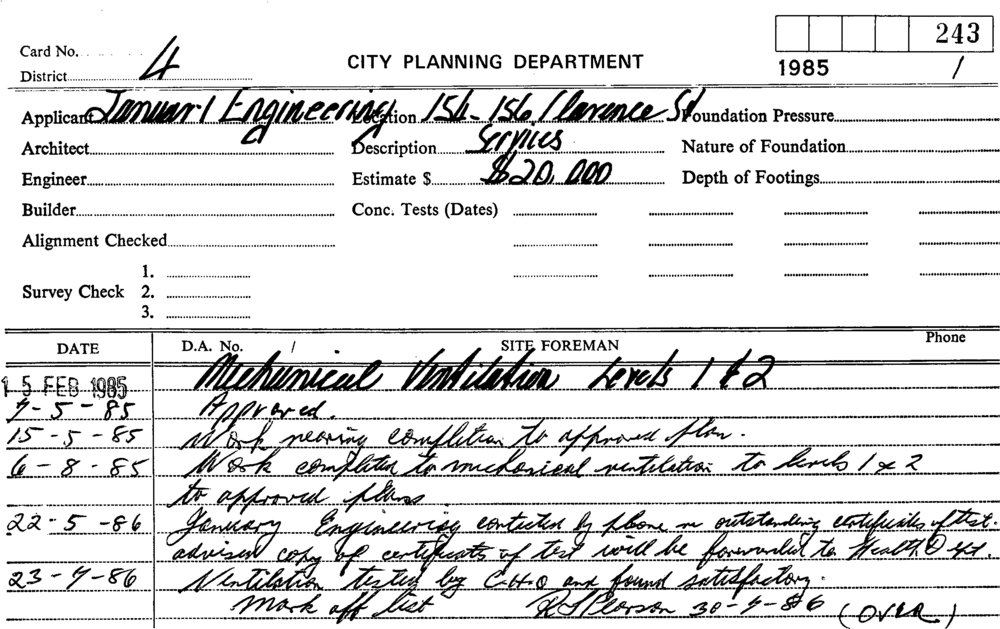 243
Card No. 4
CITY PLANNING DEPARTMENT
District
1985 /
Applicant January Engineering Location 154-156 Clarence St Foundation Pressure
Architect Description Services Nature of Foundation
Engineer Estimate $ $20,000 Depth of Footings
Builder Conc. Tests (Dates)
Alignment Checked
1.
Survey Check 2.
3.
DATE D.A. No. / SITE FOREMAN Phone
15 FEB 1985 Mechanical Ventilation Levels 1 & 2
7-5-85 Approved.
15-5-85 Work nearing completion to approved plan.
6-8-85 Work completed to mechanical ventilation to levels 1 & 2
to approved plans
22-5-86 January Engineering contacted by phone re outstanding certificates of test.
advised copy of certificates of test will be forwarded to Health
23-7-86 Ventilation tested by C.H.O and found satisfactory.
Mark off list 30-7-86 (OVER)